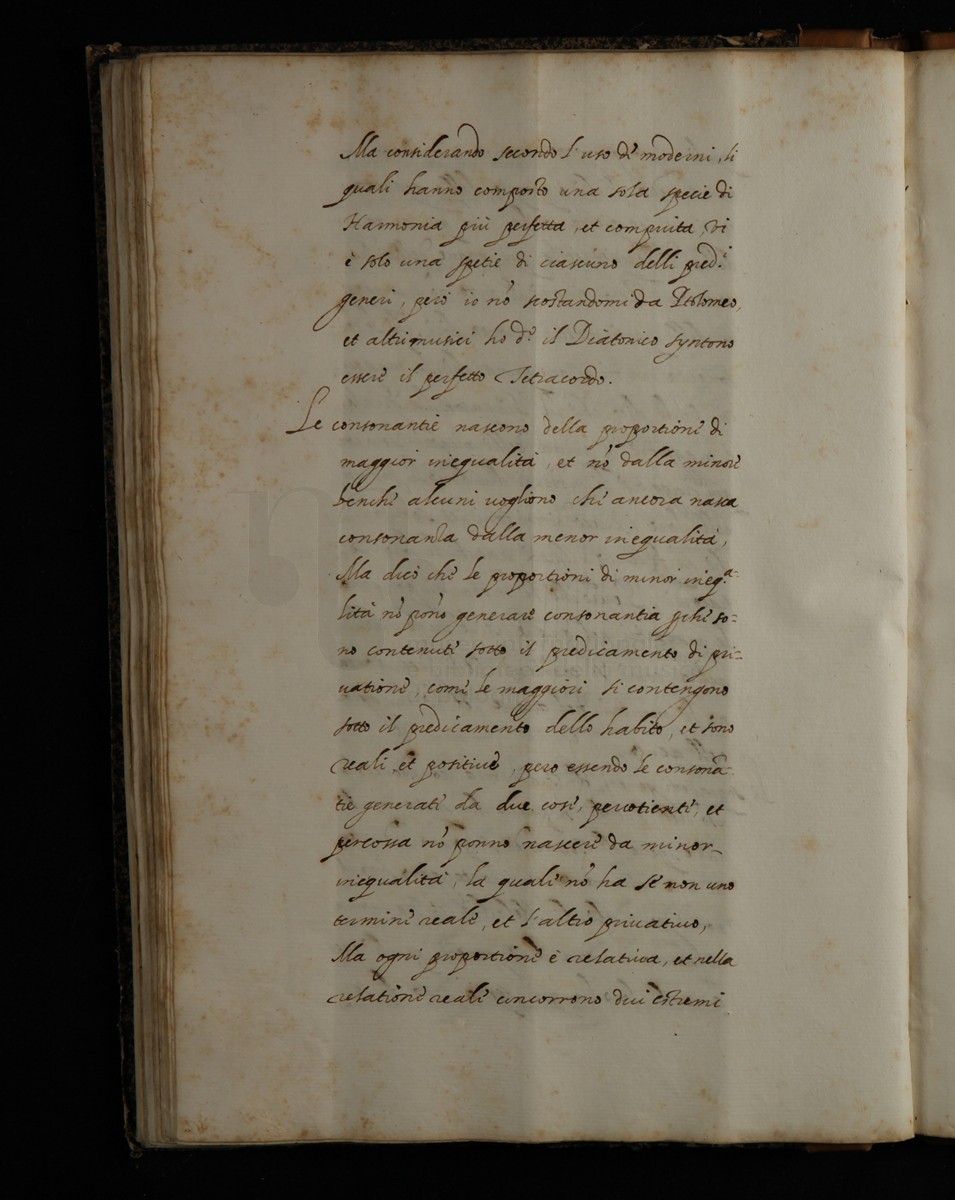 Ma considerando secondo l'uso de' moderni, li
quali hanno composto una sola specie di
Harmonia più perfetta, et compiuta, vi
è solo una spetie di ciascuno delli pred.i
generi, però io nõ scostandomi da Ptolomeo,
et altri musici ho d.o il Diatonico syntono
essere il perfetto Tetracordo.
Le consonantie nascono della proportione di
maggior inequalità, et nõ dalla minore
benche alcuni vogliono che ancora nasca
consonantia dalla menor inequalità,
Ma dico che le proportioni di minor ineq.a-
lità nõ põno generare consonantia pche so=
no contenute sotto il predicamento di pri=
uatione, come le maggiori si contengono
sotto il predicamento dello habito, et sono
reali, et positiue, pero essendo le consonã-
tie generate da due cose, percotiente, et
percossa nõ ponno nascere da minor
inequalità, la quale nõ ha se non uno
termine reale, et l'altro priuatiuo,
Ma ogni proportione è relatiua, et nella
relatione reale concorrono dui estremi